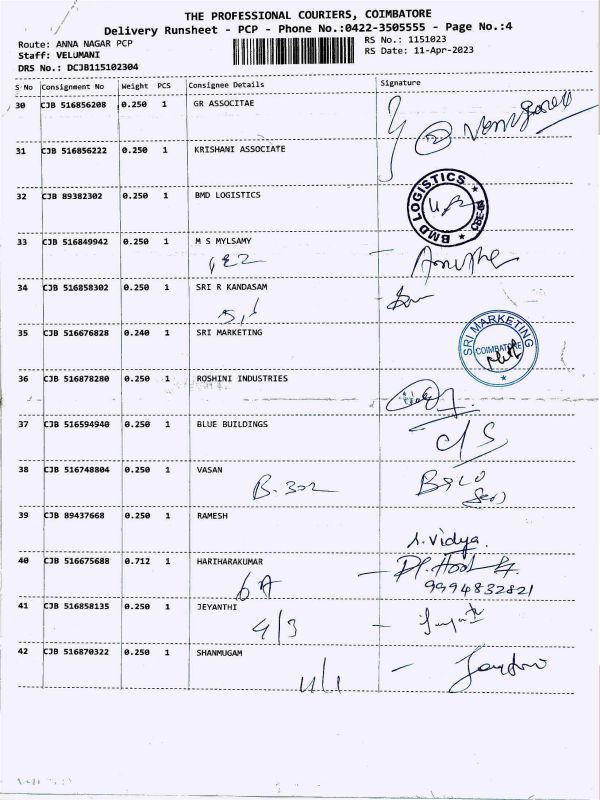 THE PROFESSIONAL COURIERS, COIMBATORE
Delivery Runsheet - PCP - Phone No.:0422-3505555 - Page No.:4
Route: ANNA NAGAR PCP RS No.: 1151023
Staff: VELUMANI RS Date: 11-Apr-2023
DRS No.: DCJB115102304
S No Consignment No Weight PCS Consignee Details Signature
30 CJB 516856208 0.250 1 GR ASSOCITAE
31 CJB 516856222 0.250 1 KRISHANI ASSOCIATE
32 CJB 89382302 0.250 1 BMD LOGISTICS
BMD LOGISTICS CBE
33 CJB 516849942 0.250 1 M S MYLSAMY
34 CJB 516858302 0.250 1 SRI R KANDASAM
35 CJB 516676828 0.240 1 SRI MARKETING
SRI MARKETING COIMBATORE
36 CJB 516878280 0.250 1 ROSHINI INDUSTRIES
37 CJB 516594940 0.250 1 BLUE BUILDINGS
C/S
38 CJB 516748804 0.250 1 VASAN
B.302
39 CJB 89437668 0.250 1 RAMESH
s.vidya
40 CJB 516675688 0.712 1 HARIHARAKUMAR
6A
9994832821
41 CJB 516858135 0.250 1 JEYANTHI
4/3
42 CJB 516870322 0.250 1 SHANMUGAM